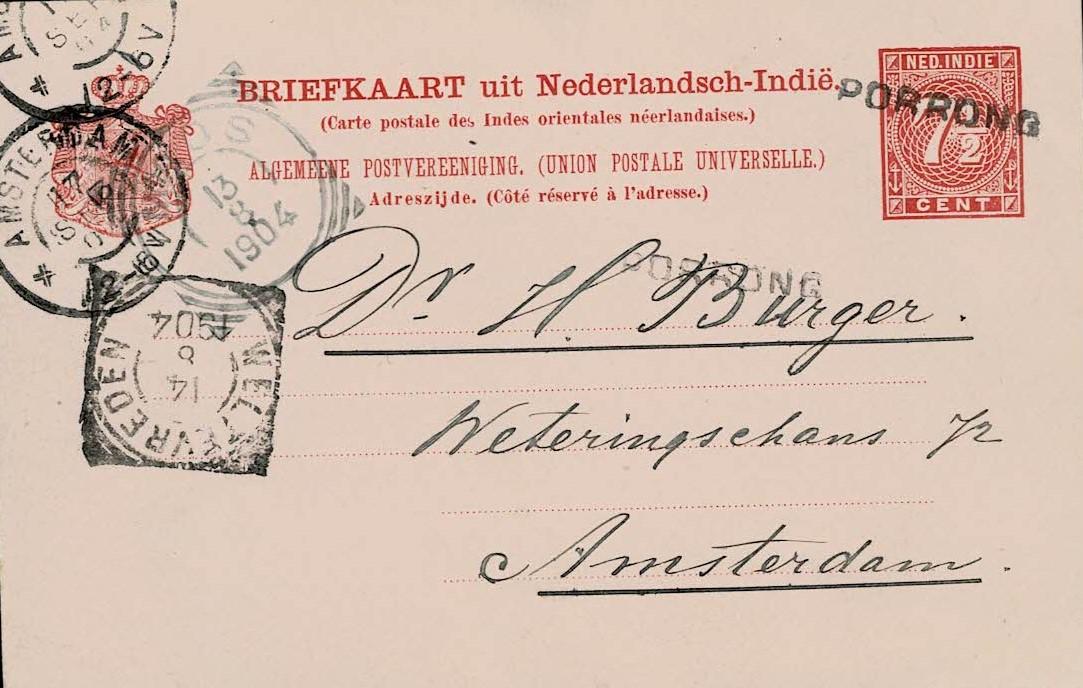 BRIEFKAART uit Nederlandsch-Indië.
(Carte postale des Indes orientales néerlandaises.)
ALGEMEENE POSTVEREENIGING. (UNION POSTALE UNIVERSELLE.)
Adreszijde. (Côté réservé à l'adresse.)
NED. INDIE
7½
CENT
PORRONG
PORRONG
13
8
1904
AMSTERDAM
12-6V
WELTEVREDEN
14
8
1904
Dr H Burger.
Weteringschans 72
Amsterdam.